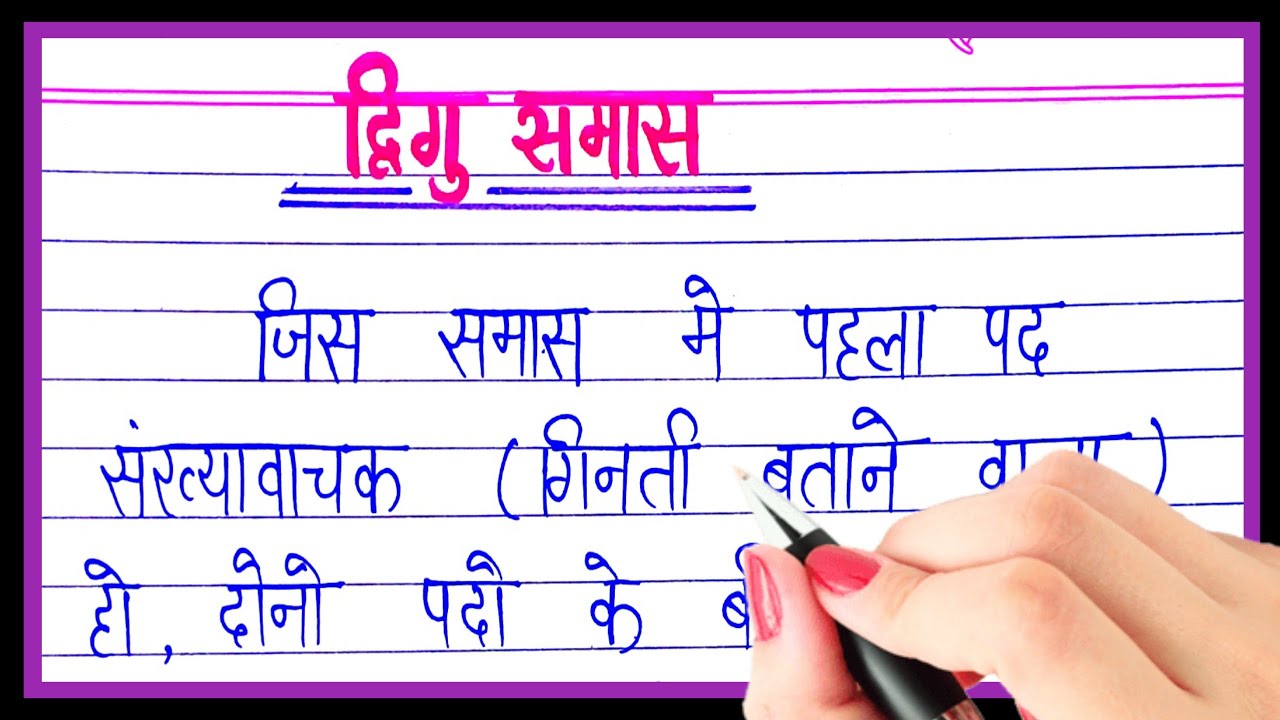 द्विगु समास
जिस समास मे पहला पद
संख्यावाचक (गिनती बताने
हो, दोनो पदो के